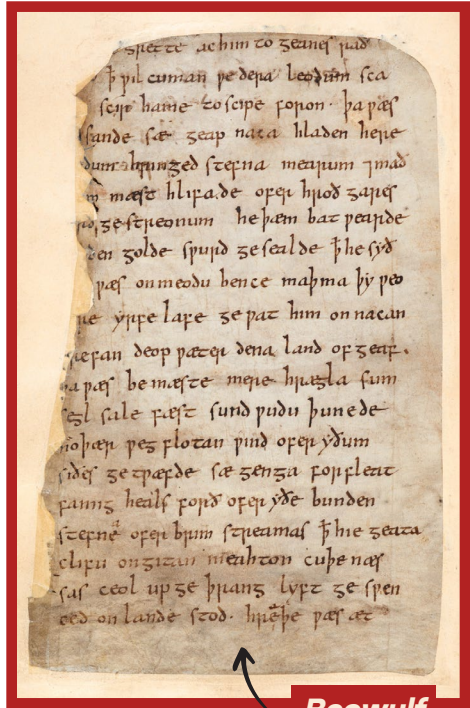 grette ac him to geanes rad
ꝥ ƿil cuman ƿedera leodum sca
scir hame to scipe foron · þa ƿæs
sande sæ geap naca hladen here
dum hringed stefna mearum ⁊ mað
m mæst hlifade ofer hroð gares
gestreonum he þæm bat ƿearde
den golde sƿurd gesealde ꝥ he syð
ƿæs on meodu bence maþma þy ƿeo
re yrfe lafe geƿat him on nacan
refan deop ƿæter dena land ofgeaf .
a ƿæs be mæste mere hrægla sum
segl sale fæst sund ƿudu þunede
no þær ƿeg flotan ƿind ofer yðum
siðes getƿæfde sæ genga for fleat
famig heals forð ofer yðe bunden
stefna ofer brim streamas ꝥ hie geata
clifu ongitan meahton cuþe næs
sas ceol up geþrang lyft ge sƿen
ced on lande stod · hreþe ƿæs æt
Beowulf